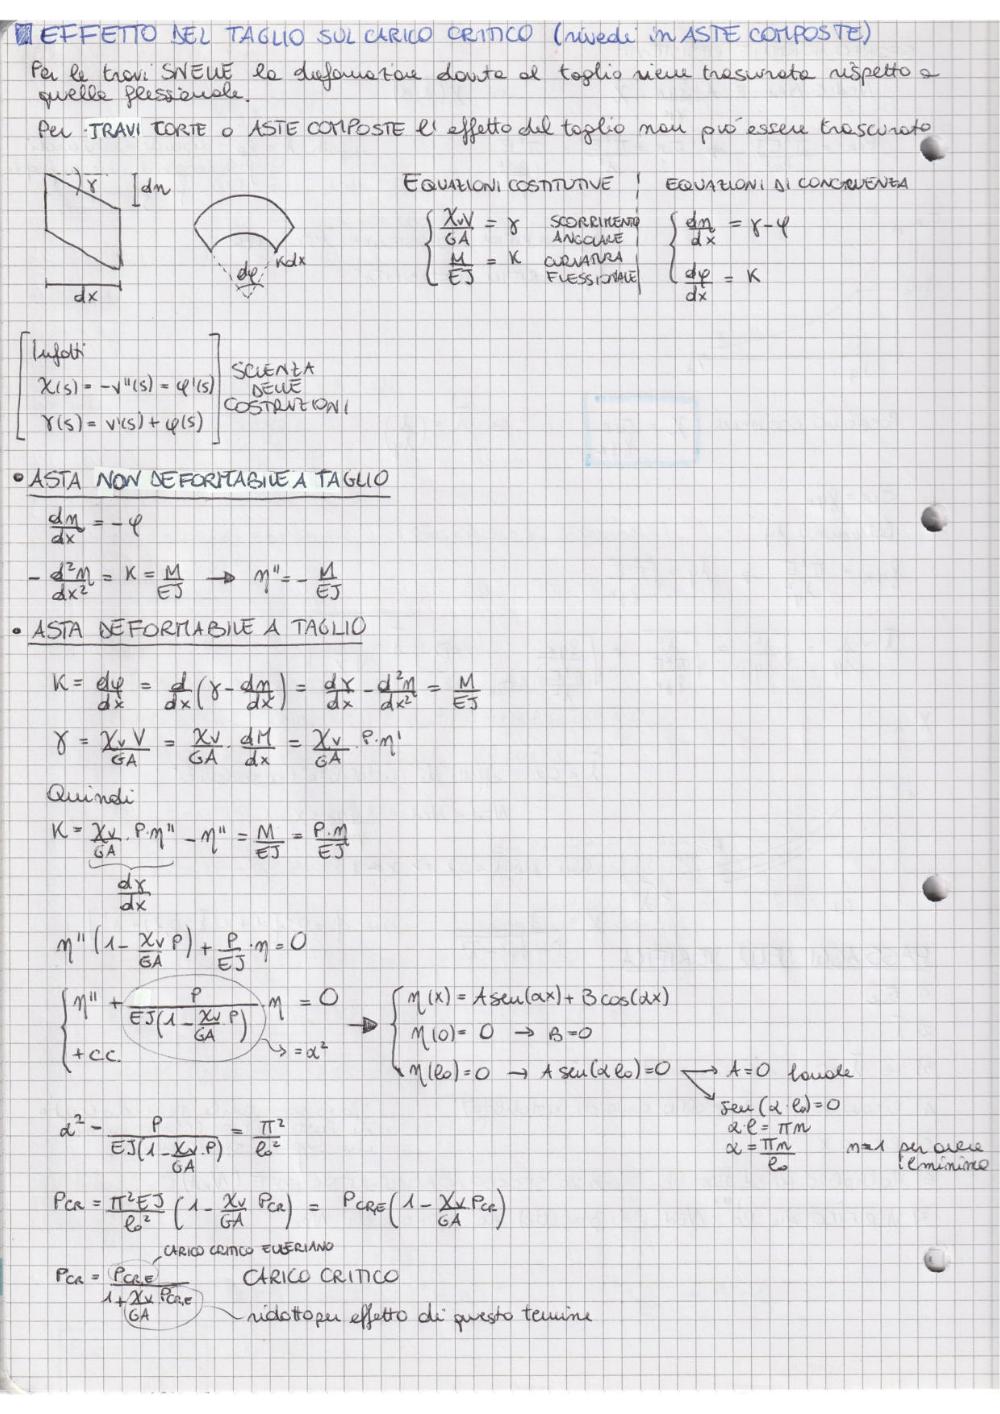 EFFETTO DEL TAGLIO SUL CARICO CRITICO (rivedi in ASTE COMPOSTE)
Per le travi SNELLE la deformazione dovuta al taglio viene trascurata rispetto a
quella flessionale.
Per TRAVI TORTE o ASTE COMPOSTE l'effetto del taglio non può essere trascurato
γ dη
dx
dφ Kdx
EQUAZIONI COSTITUTIVE
χv V/GA = γ SCORRIMENTO ANGOLARE
M/EJ = K CURVATURA FLESSIONALE
EQUAZIONI DI CONGRUENZA
dη/dx = γ-φ
dφ/dx = K
Infatti
χ(s) = -v''(s) = φ'(s)
γ(s) = v'(s) + φ(s)
SCIENZA
DELLE
COSTRUZIONI
• ASTA NON DEFORMABILE A TAGLIO
dη/dx = -φ
- d²η/dx² = K = M/EJ → η'' = - M/EJ
• ASTA DEFORMABILE A TAGLIO
K = dφ/dx = d/dx (γ - dη/dx) = dγ/dx - d²η/dx² = M/EJ
γ = χv V/GA = χv/GA · dM/dx = χv/GA · P·η'
Quindi
K = χv/GA · P·η'' - η'' = M/EJ = P·η/EJ
dγ/dx
η'' (1 - χv/GA P) + P/EJ · η = 0
η'' + P/EJ(1 - χv/GA P) · η = 0
+ C.C. → = α²
→ η(x) = A sen(αx) + B cos(αx)
η(0) = 0 → B=0
η(l₀) = 0 → A sen(α l₀) = 0 → A=0 banale
sen(α·l₀)=0
α·l = πn
α = πn/l₀ n=1 per avere
il minimo
α² - P/EJ(1 - χv/GA ·P) = π²/l₀²
PCR = π²EJ/l₀² (1 - χv/GA PCR) = PCR,E (1 - χv/GA PCR)
CARICO CRITICO EULERIANO
PCR = PCR,E/1 + χv/GA PCR,E CARICO CRITICO
ridotto per effetto di questo termine